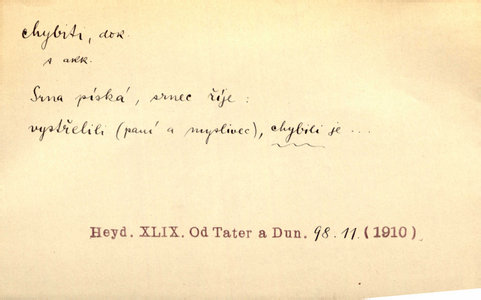 chybiti, dok.
s akk.
Srna píská, srnec říje:
vystřelili (paní a myslivec), chybili je ...
Heyd. XLIX. Od Tater a Dun. 98. 11. (1910)